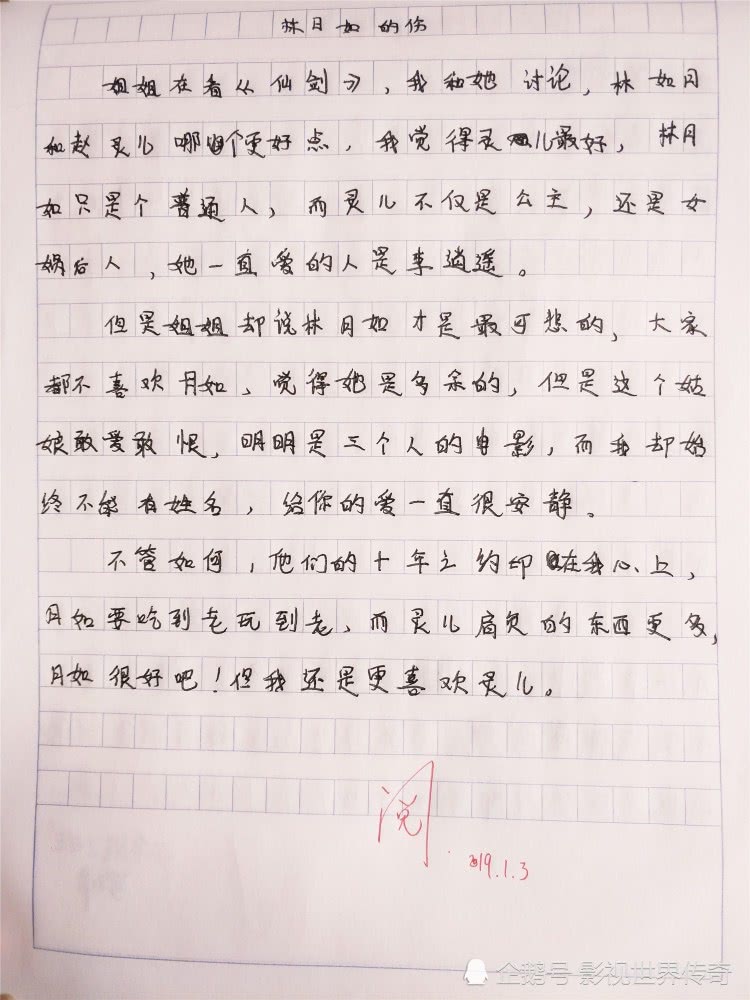 林月如的伤
姐姐在看《仙剑》，我和她讨论，林如月
和赵灵儿哪个更好点，我觉得灵儿最好，林月
如只是个普通人，而灵儿不仅是公主，还是女
娲后人，她一直爱的人是李逍遥。
但是姐姐却说林月如才是最可悲的，大家
都不喜欢月如，觉得她是多余的，但是这个姑
娘敢爱敢恨，明明是三个人的电影，而我却始
终不能有姓名，给你的爱一直很安静。
不管如何，他们的十年之约印在我心上，
月如要吃到老玩到老，而灵儿肩负的东西更多，
月如很好吧！但我还是更喜欢灵儿。
阅
2019.1.3
企鹅号 影视世界传奇